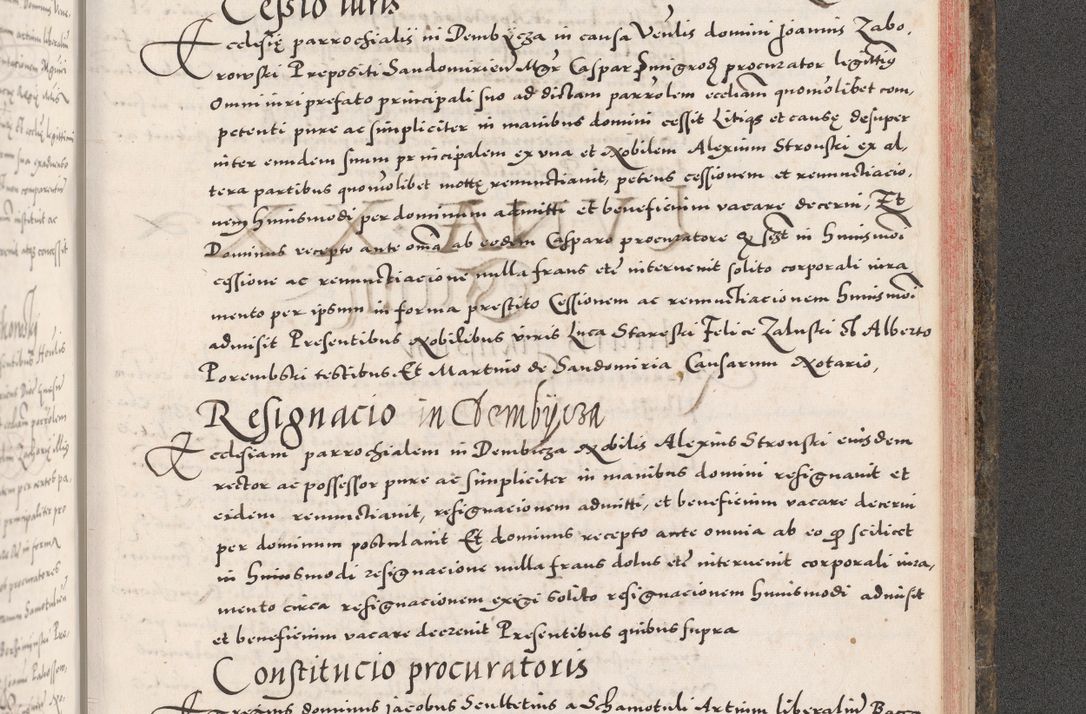 Cessio iuris
Ecclesię parrochialis in Dembycza in causa Veñlis domini Joannis Zabo,
rowski Prepositi Sandomirieñ Mgr Caspar Smigrod procurator legittim9
omni iuri prefato principali suo ad dictam parrolem eccliam quomolibet com,
petenti pure ac simpliciter in manibus domini cessit Litiqs et causę desuper
inter eundem suum principalem ex una et Nobilem Alexium Stronski ex al,
tera partibus quomolibet mottę renunctiavit, petens cessionem et renunctiacio,
nem huiusmodi per dominum admitti et beneficium vacare decerni, Et
Dominus recepto ante omã ab eodem Casparo procuratore q sct in huiusmoi
cessione ac renunctiacione nulla fraus etc intervenit solito corporali iura
mento per ipsum in forma prestito Cessionem ac renunctiacionem huiusmoi
admisit Presentibus Nobilibus viris Luca Stareski Felice Zaluski et Alberto
Porembski testibus Et Martino de Sandomiria Causarum Notario,
Resignacio in Dembycza
Ecclesiam parrochialem in Dembicza Nobilis Alexius Stronski eiusdem
rector ac possessor pure ac simpliciter in manibus domini resignavit et
eidem renunctiavit, resignacionem admitti, et beneficium vacare decerni
per dominum postulavit Et dominus recepto ante omnia ab eo q scilicet
in huiusmodi resignacione nulla fraus dolus etc intervenit corporali iura,
mento circa resignacionem exigi solito resignacionem huiusmodi admisit
et beneficium vacare decrevit Presentibus quibus supra
Constitucio procuratoris
Egregius dominus Jacobus Scultetius a Schamotuli Artium liberaliu Bacca